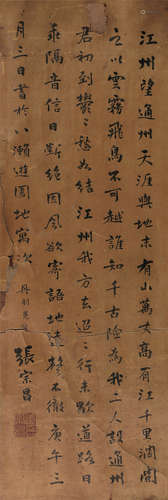 江州望通州天涯與地末有山萬丈高有江千里闊間
之以雲霧飛鳥不可越誰知千古險為我二人設通州
君初到鬱々愁如結江州我方去迢々行未歇道路日
乖隔音信日斷絕因風欲寄語地遠聲不徹庚午三
月三日書於八瀨遊園地寓次
張宗昌